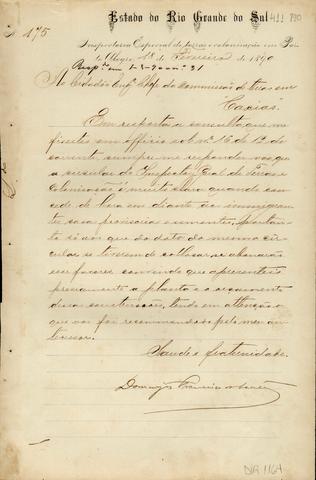 Estado do Rio Grande do Sul
N 175
Inspectoria Especial de terras e colonisação em Porto
Alegre, de Fevereiro de 1890
Ao Cidadão Engº Chefe da Commissão de terras em
Caxias.
Em resposta a consulta que me
fizestes em officio sob nº 16 de 12 do
corrente, cumpre-me responder-vos que
a circular da Inspectoria Geral de Terras e
Colonisação é muito clara quando con-
cede de hora em diante ao immigran-
te casa provisoria e somente, portanto
só aos que da data da mesma cir-
cular se tiverem de collocar, se abonarão
esse favores convindo que apresenteis
previamente a planta e o orçamento
dessas construcções, tendo em attenção o
que vos foi recommendado pelo meu an-
tecessor.
Saude e fraternidade.
Domingos
DVR 1164